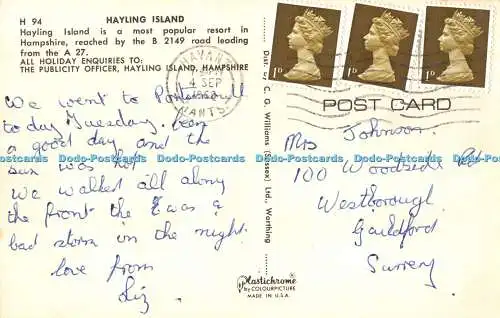 H 94 HAYLING ISLAND
Hayling Island is a most popular resort in
Hampshire, reached by the B 2149 road leading
from the A 27.
ALL HOLIDAY ENQUIRIES TO:
THE PUBLICITY OFFICER, HAYLING ISLAND, HAMPSHIRE
We went to
today Tuesday,
a good day and the
sun was hot
We walked all along
the front the was a
bad storm in the night.
love from
Liz
Dist. by C. G. Williams (Sussex) Ltd., Worthing
Plastichrome
by COLOURPICTURE
MADE IN U.S.A.
HAVANT
4 SEP
HANTS
1D
1D
1D
POST CARD
Mrs Johnson
100 Woodside Rd
Westborough
Guildford
Surrey
Dodo-Postcards Dodo-Postcards Dodo-Postcards Dodo-Postcards Dodo-Postcards Dodo-Postcards